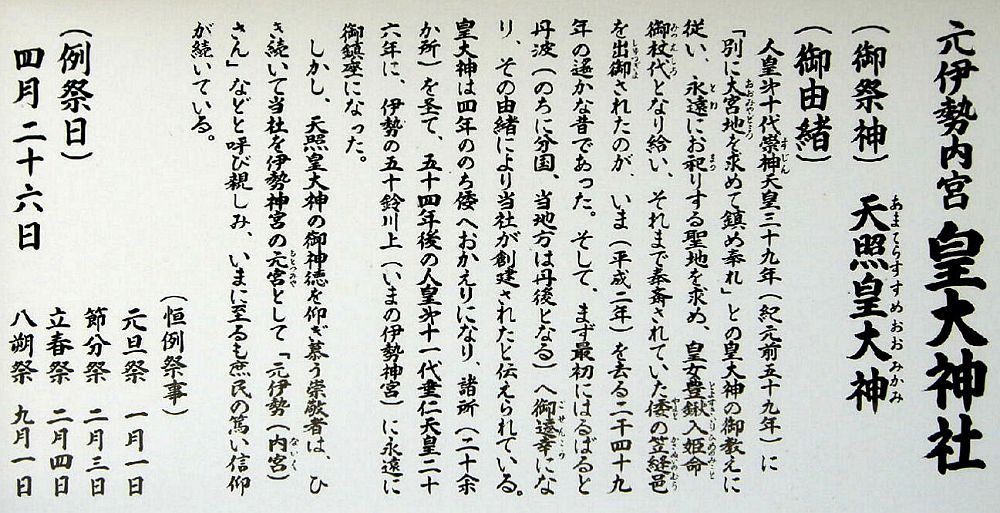 元伊勢内宮 皇大神社
(御祭神) 天照皇大神
あまてらすすめおおみかみ
(御由緒)
人皇第十代崇神天皇三十九年(紀元前五十九年)に
「別に大宮地を求めて鎮め奉れ」との皇大神の御教えに
従い、永遠にお祀りする聖地を求め、皇女豊鍬入姫命
御杖代となり給い、それまで奉斎されていた倭の笠縫邑
を出御されたのが、いま(平成二年)を去る二千四十九
年の遙かな昔であった。そして、まず最初にはるばると
丹波(のちに分国、当地方は丹後となる)へ御遠幸にな
り、その由緒により当社が創建されたと伝えられている。
皇大神は四年ののち倭へおかえりになり、諸所(二十余
か所)を圣て、五十四年後の人皇第十一代垂仁天皇二十
六年に、伊勢の五十鈴川上(いまの伊勢神宮)に永遠に
御鎮座になった。
しかし、天照皇大神の御神徳を仰ぎ慕う崇敬者は、ひ
き続いて当社を伊勢神宮の元宮として「元伊勢(内宮)
さん」などと呼び親しみ、いまに至るも庶民の篤い信仰
が続いている。
(恒例祭事)
元旦祭 一月一日
節分祭 二月三日
立春祭 二月四日
八朔祭 九月一日
(例祭日)
四月二十六日